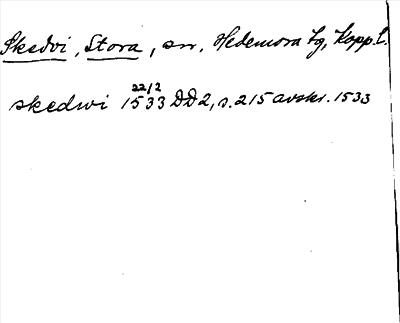 Skedvi, Stora, sn, Hedemora tg, Kopp.l.
22/2
skedwi 1533 DD2, s. 215 avskr. 1533